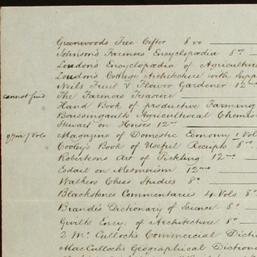 Greenwoods Tree Lifter 8vo
Johnsons Farmers' Encyclopædia 8vo
Loudons Encyclopædia of Agriculture
Loudons Cottage Architecture with Supp
Neils Fruit & Flower Gardener 12mo
cannot find The Farmers Treasure
Hand Book of productive Farming
Boussingaults Agricultural Chemis
Stewart on Horses 12mo
Magazine of Domestic Economy Vol
Cooley's Book of Useful Receipts 8vo
Robertsons Art of Pickling 12mo
Esdail on Mesmerism 12mo
Walkers Chess Studies 8vo
Blackstones Commentaries 4 Vols 8vo
Brande's Dictionary of Science 8vo
Gwilts Ency. of Architecture 8vo
J. R. McCullochs Commercial Dictio
MacCullochs Geographical Diction